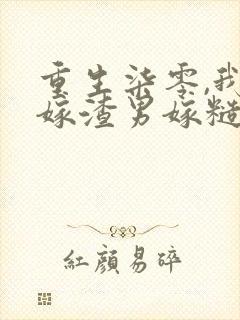 重生柒零,我
嫁渣男嫁糙
紅顏易碎